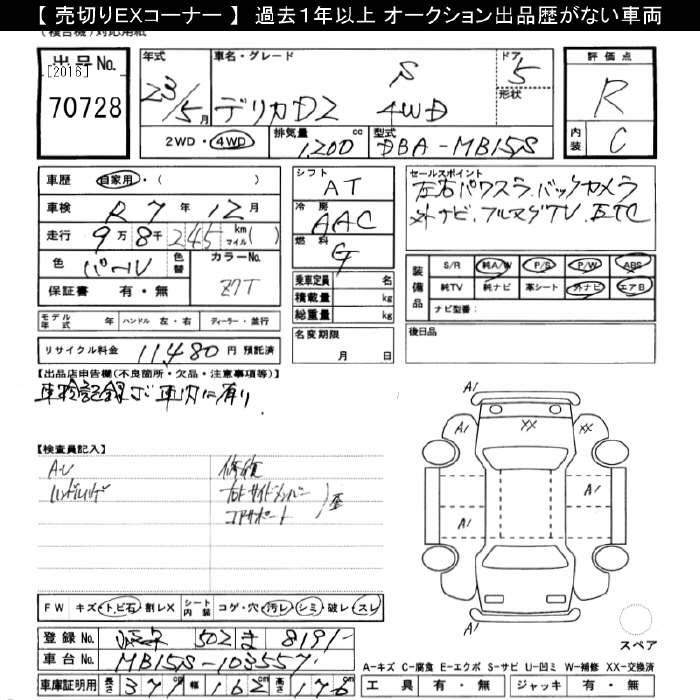 【 売切りEXコーナー 】 過去1年以上 オークション出品歴がない車両
(複合機)対応用紙
出品No. [2016] 70728
年式 23/5月
車名・グレード デリカD2 S 4WD
ドア 5
形状
2WD・4WD 排気量 1,200 cc 型式 DBA-MB15S
評価点 R
内装 C
車歴 自家用・( )
車検 R7年12月
走行 9万8千245 km マイル( )
色 パール 色替 カラーNo. Z7T
保証書 有・無
モデル年式 年 ハンドル 左・右 ディーラー・並行
リサイクル料金 11,480円 預託済
シフト AT
冷房 AAC
燃料 G
乗車定員 名
積載量 kg
総重量 kg
名変期限
月 日
セールスポイント
左右パワスラ.バックカメラ
外ナビ.フルセグTV.ETC
装備品 S/R 純A/W P/S P/W ABS
純TV 純ナビ 革シート 外ナビ エアB
ナビ型番:
後日品
【出品店申告欄(不良箇所・欠品・注意事項等)】
車検記録ござ車内に有り
【検査員記入】
AU
修複
右Fサイドメンバー
コアサポート
歪
FW キズ・ト.ビ石・割レX シート内装 コゲ・穴・汚レ・シミ・破レ・スレ
登録No. 502 ま 8191
車台No. MB15S-103557
車庫証明用 長さ 371 cm 幅 162 cm 高さ 176 cm
A1
A1 XX XX
A1
A1
A1
スペア
A-キズ C-腐食 E-エクボ S-サビ U-凹ミ W-補修 XX-交換済
工具 有・無 ジャッキ 有・無